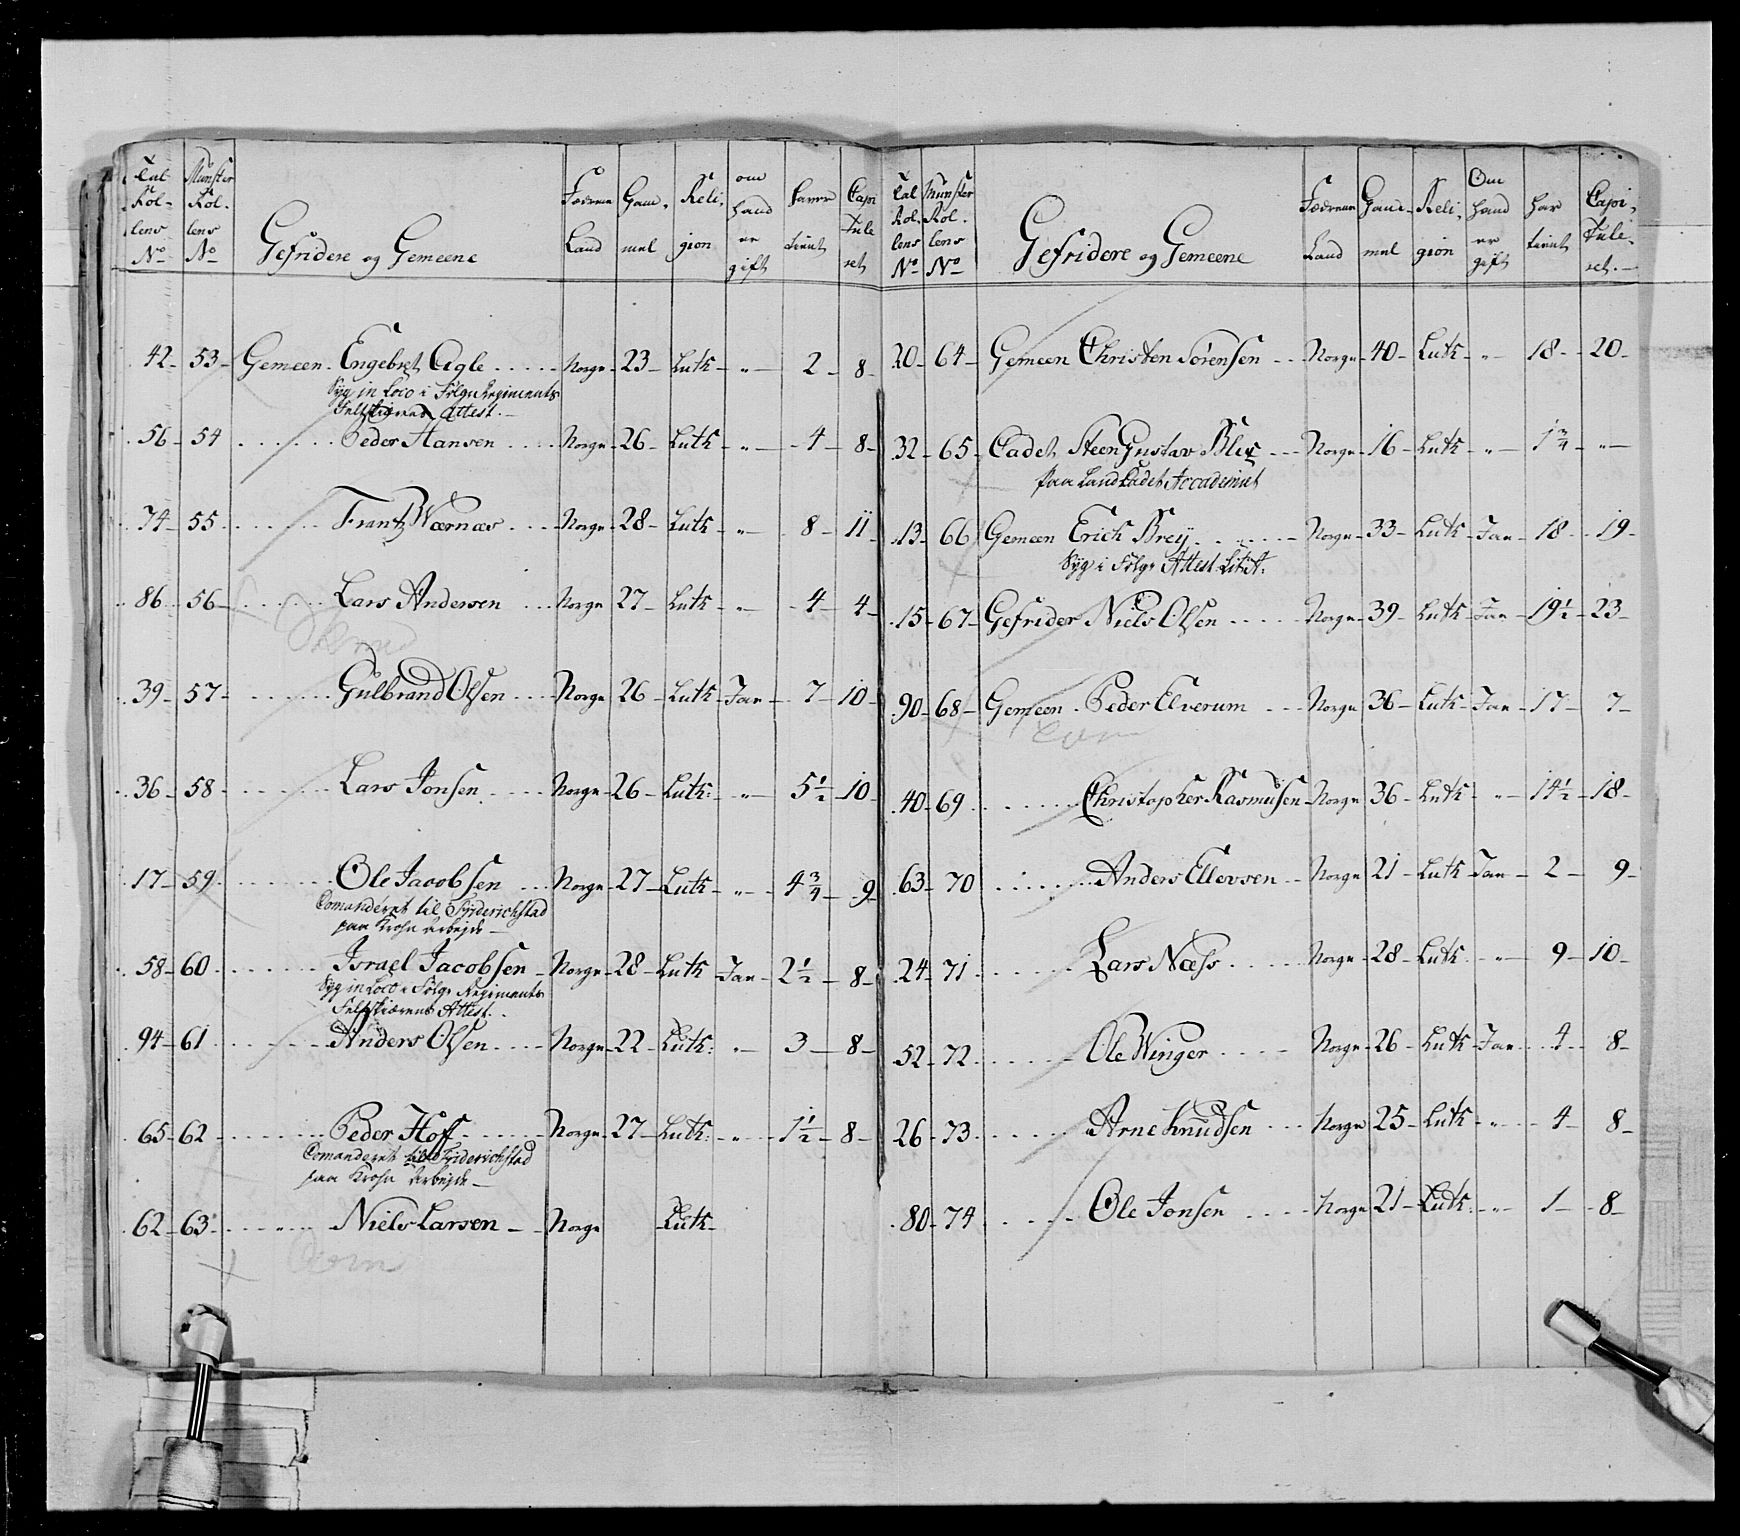 Tal Rol- lens No | Mynster Rol. lens No | Gefridere og Gemeene | Fæderne Land | Gam- mel | Reli- gion | om hand er gift | haver tient | Capi tule ret
42 - 53 - Gemeen Engebret Aigle - Norge - 23 - Luth - " - 2 - 8
Syg in Loco i Følge Regiments
Feltskierens Attest. -
56 - 54 Peder Hansen Norge - 26 - Luth - " - 4 - 8
74 - 55 Frantz Wærnær Norge - 28 - Luth - " - 8 - 11
86 56 - Lars Andersen Norge 27 - Luth - " - 4 - 4
39 - 57 - Gulbrand Olsen Norge - 26 - Luth - Jae - 7 - 10
36 - 58 Lars Jonsen Norge - 26 - Luth: " - 5½ - 10
17 - 59 Ole Jacobsen Norge - 27 - Luth - " - 4¾ - 9
Comanderet til Friderichstad
paa Krohn Arbejde -
58 - 60 Israel Jacobsen - Norge - 28 - Luth - Jae - 2½ - 8
Syg in Loco i Følge Regiments
Feltskierens Attest.
94 - 61 Anders Olsen Norge - 22 - Luth: " - 3 - 8
65 - 62 Peder Hoff Norge - 27 - Luth: - " - 1½ - 8
Comanderet til Friderichstad
paa Krohn Arbejde -
62 - 63 Niels Larsen - Norge Luth
Tal Rol- lens No | Mynster Rol- lens No | Gefridere og Gemeene | Fæderne Land | Gam- mel | Reli- gion | Om hand er gift | har tient | Capi- tule- ret. -
20 - 64 - Gemeen Christen Sørensen Norge - 40 - Luth - " - 18 - 20 -
32 - 65 - Cadet Steen Gustav Blix Norge - 16 - Luth - " - 1¾ - " -
paa Land Cadet Accademiet
13 - 66 Gemeen Erich Brey Norge - 33 - Luth - Jae - 18 - 19 -
Syg i Følge Attest Litr A.
15 - 67 - Gefrider Niels Olsen Norge - 39 - Luth - Jae - 19½ - 23 -
90 - 68 - Gemeen Peder Elverum Norge 36 - Luth - Jae - 17 - 7 -
40 - 69 Christopher Rasmusen - Norge 36 - Luth - " - 14½ - 18 -
63 - 70 Anders Ellevsen Norge 21 - Luth Jae - 2 - 9 -
24 - 71 Lars Næss Norge - 28 - Luth " - 9 - 10 -
52 - 72 Ole Winger Norge - 26 - Luth Jae 4 - 8 -
26 - 73 Arne Knudsen Norge 25 - Luth - " - 4 - 8 -
80 - 74 Ole Jonsen Norge 21 - Luth: - " - 1 - 8 -